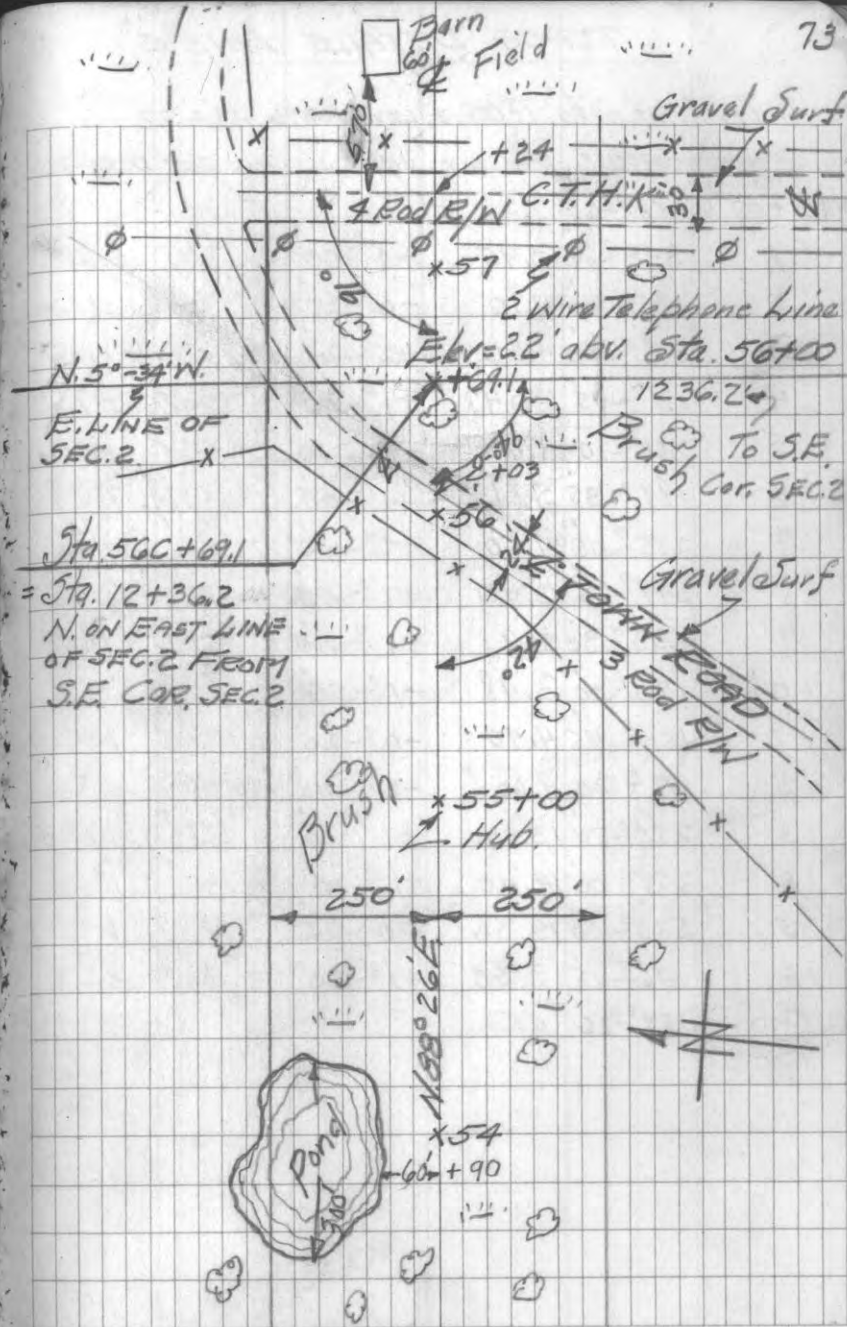 73
Barn
60' ℄
Field
Gravel Surf
570
+24
4 Rod R/W C.T.H. "K"
30
91°
×57
2 Wire Telephone Line
Elev = 22' abv. Sta. 56+00
N. 5°-34' W.
+69.1
1236.2'
E. LINE OF
SEC. 2
Brush
To S.E.
Cor. SEC. 2
+03
×56
Sta. 56C+69.1
= Sta. 12+36.2
N. ON EAST LINE
OF SEC. 2 FROM
S.E. COR. SEC. 2
Gravel Surf
TOWN ROAD
3 Rod R/W
42°
Brush
×55+00
Hub.
250'
250'
N.88°26'E.
×54
Pond
300'
60' +90
N